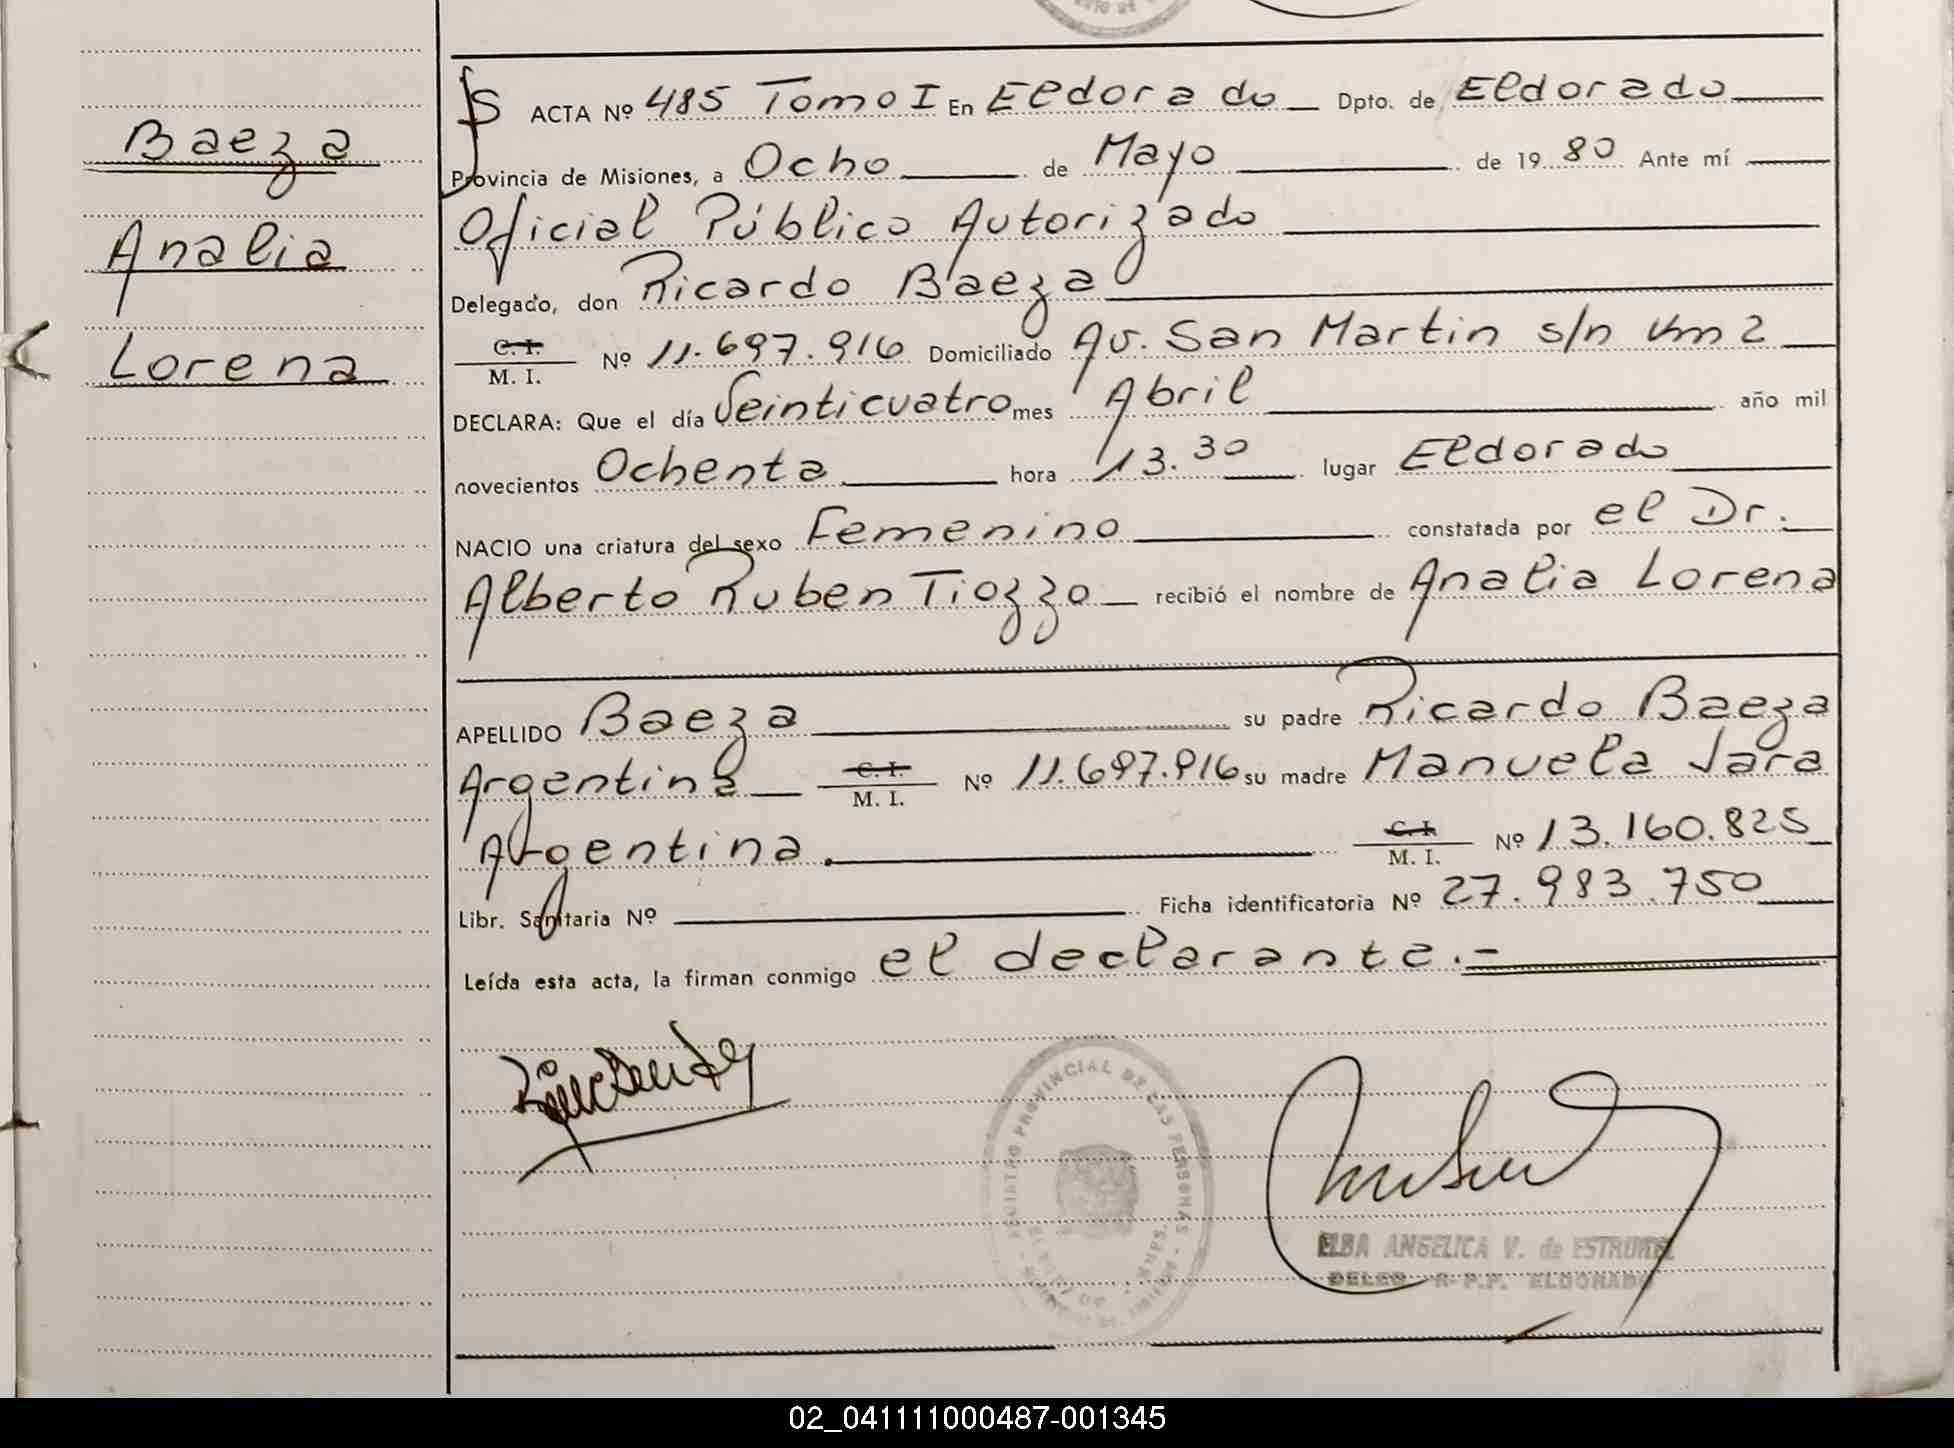 Baeza
Analia
Lorena
ACTA Nº 485 Tomo I En Eldorado Dpto. de Eldorado
Provincia de Misiones, a Ocho de Mayo de 19 80 Ante mí
Oficial Público Autorizado
Delegado, don Ricardo Baeza
C. I.
M. I. Nº 11.697.916 Domiciliado Av. San Martin s/n Km 2
DECLARA: Que el día Veinticuatro mes Abril año mil
novecientos Ochenta hora 13.30 lugar Eldorado
NACIO una criatura del sexo Femenino constatada por el Dr.
Alberto Ruben Tiozzo recibió el nombre de Analia Lorena
APELLIDO Baeza su padre Ricardo Baeza
Argentina C. I. M. I. Nº 11.697.916 su madre Manuela Jara
Argentina. C. I. M. I. Nº 13.160.825
Libr. Sanitaria Nº Ficha identificatoria Nº 27.983.750
Leída esta acta, la firman conmigo el declarante.-
PROVINCIAL DE LAS PERSONAS
ELBA ANGELICA V. de
R.P.P. ELDORADO
02_041111000487-001345